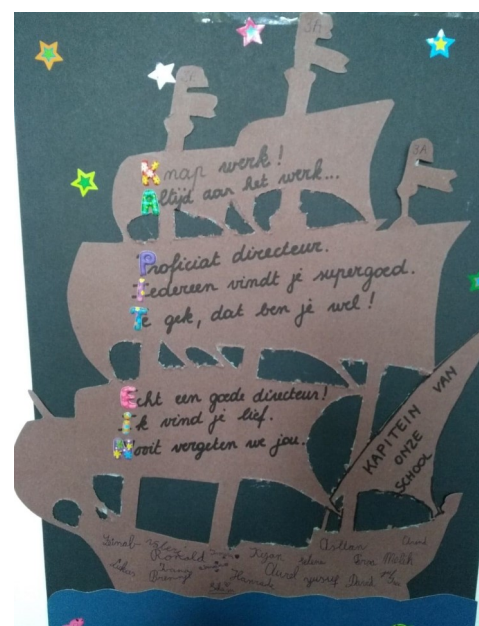 3A
3A
3A
Knap werk!
Altijd aan het werk...
Proficiat directeur.
Iedereen vindt je supergoed.
Te gek, dat ben je wel!
Echt een goede directeur!
Ik vind je lief.
Nooit vergeten we jou.
KAPITEIN VAN
ONZE
SCHOOL
Ronald
Ryan
Aurel
Hamza
Yussif